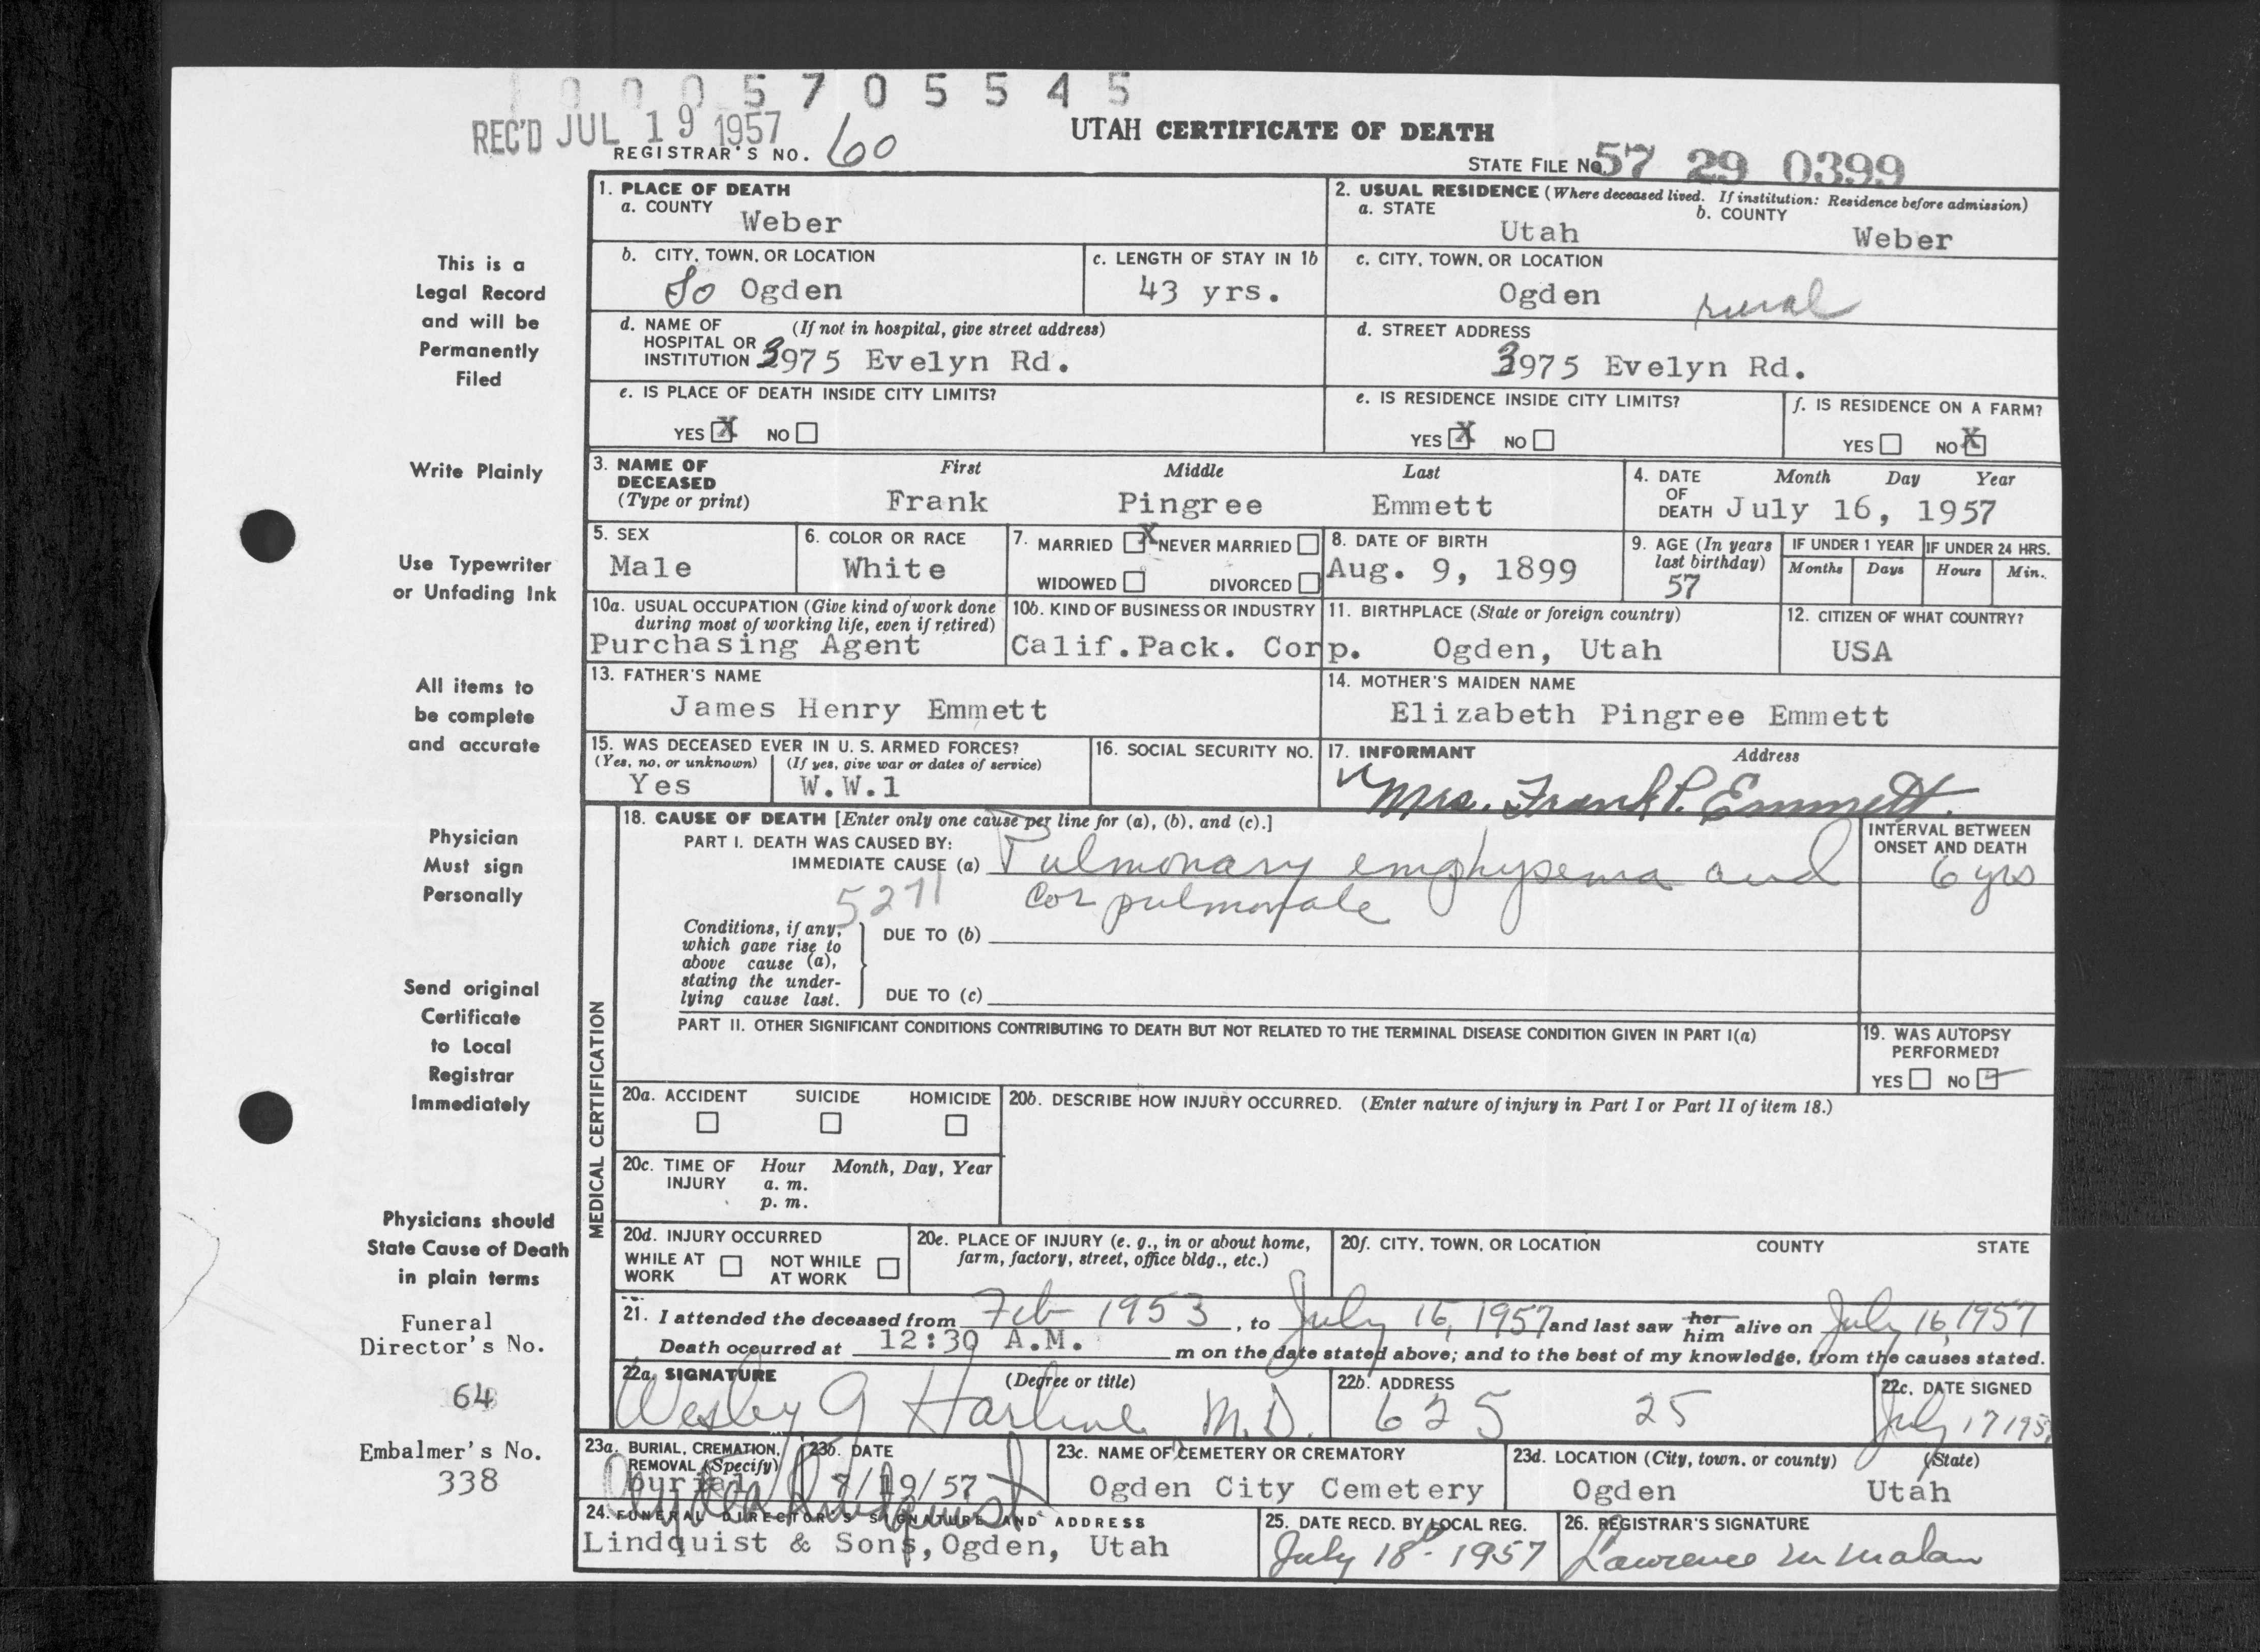 1 0 0 0 5 7 0 5 5 4 5
REC'D JUL 19 1957
REGISTRAR'S NO. 60
UTAH CERTIFICATE OF DEATH
STATE FILE No 57 29 0399
1. PLACE OF DEATH
a. COUNTY
Weber
2. USUAL RESIDENCE (Where deceased lived. If institution: Residence before admission)
a. STATE
Utah
b. COUNTY
Weber
b. CITY, TOWN, OR LOCATION
So Ogden
c. LENGTH OF STAY IN 1b
43 yrs.
c. CITY, TOWN, OR LOCATION
Ogden rural
d. NAME OF (If not in hospital, give street address)
HOSPITAL OR
INSTITUTION 3975 Evelyn Rd.
d. STREET ADDRESS
3975 Evelyn Rd.
e. IS PLACE OF DEATH INSIDE CITY LIMITS?
YES X NO
e. IS RESIDENCE INSIDE CITY LIMITS?
YES X NO
f. IS RESIDENCE ON A FARM?
YES NO X
3. NAME OF First Middle Last
DECEASED
(Type or print) Frank Pingree Emmett
4. DATE Month Day Year
OF
DEATH July 16, 1957
5. SEX
Male
6. COLOR OR RACE
White
7. MARRIED X NEVER MARRIED
WIDOWED DIVORCED
8. DATE OF BIRTH
Aug. 9, 1899
9. AGE (In years
last birthday)
57
IF UNDER 1 YEAR IF UNDER 24 HRS.
Months Days Hours Min.
10a. USUAL OCCUPATION (Give kind of work done
during most of working life, even if retired)
Purchasing Agent
10b. KIND OF BUSINESS OR INDUSTRY
Calif.Pack. Corp.
11. BIRTHPLACE (State or foreign country)
Ogden, Utah
12. CITIZEN OF WHAT COUNTRY?
USA
13. FATHER'S NAME
James Henry Emmett
14. MOTHER'S MAIDEN NAME
Elizabeth Pingree Emmett
15. WAS DECEASED EVER IN U. S. ARMED FORCES?
(Yes, no, or unknown) (If yes, give war or dates of service)
Yes W.W.1
16. SOCIAL SECURITY NO.
17. INFORMANT Address
Mrs. Frank P. Emmett.
MEDICAL CERTIFICATION
18. CAUSE OF DEATH [Enter only one cause per line for (a), (b), and (c).]
PART I. DEATH WAS CAUSED BY:
IMMEDIATE CAUSE (a) Pulmonary emphysema and
cor pulmonale
5271
INTERVAL BETWEEN
ONSET AND DEATH
6 yrs
Conditions, if any,
which gave rise to
above cause (a),
stating the under-
lying cause last.
DUE TO (b)
DUE TO (c)
PART II. OTHER SIGNIFICANT CONDITIONS CONTRIBUTING TO DEATH BUT NOT RELATED TO THE TERMINAL DISEASE CONDITION GIVEN IN PART I(a)
19. WAS AUTOPSY
PERFORMED?
YES NO ✓
20a. ACCIDENT SUICIDE HOMICIDE
20b. DESCRIBE HOW INJURY OCCURRED. (Enter nature of injury in Part I or Part II of item 18.)
20c. TIME OF Hour Month, Day, Year
INJURY a. m.
p. m.
20d. INJURY OCCURRED
WHILE AT NOT WHILE
WORK AT WORK
20e. PLACE OF INJURY (e. g., in or about home,
farm, factory, street, office bldg., etc.)
20f. CITY, TOWN, OR LOCATION COUNTY STATE
21. I attended the deceased from Feb 1953, to July 16, 1957 and last saw her him alive on July 16, 1957
Death occurred at 12:30 A.M. m on the date stated above; and to the best of my knowledge, from the causes stated.
22a. SIGNATURE (Degree or title)
Wesley G Harline M.D.
22b. ADDRESS
625 25
22c. DATE SIGNED
July 17 195
23a. BURIAL, CREMATION,
REMOVAL (Specify)
burial
23b. DATE
7/19/57
23c. NAME OF CEMETERY OR CREMATORY
Ogden City Cemetery
23d. LOCATION (City, town, or county) (State)
Ogden Utah
24. FUNERAL DIRECTOR'S SIGNATURE AND ADDRESS
Lindquist & Sons, Ogden, Utah
25. DATE RECD. BY LOCAL REG.
July 18- 1957
26. REGISTRAR'S SIGNATURE
Lawrence M Malan
This is a
Legal Record
and will be
Permanently
Filed
Write Plainly
Use Typewriter
or Unfading Ink
All items to
be complete
and accurate
Physician
Must sign
Personally
Send original
Certificate
to Local
Registrar
Immediately
Physicians should
State Cause of Death
in plain terms
Funeral
Director's No.
64
Embalmer's No.
338